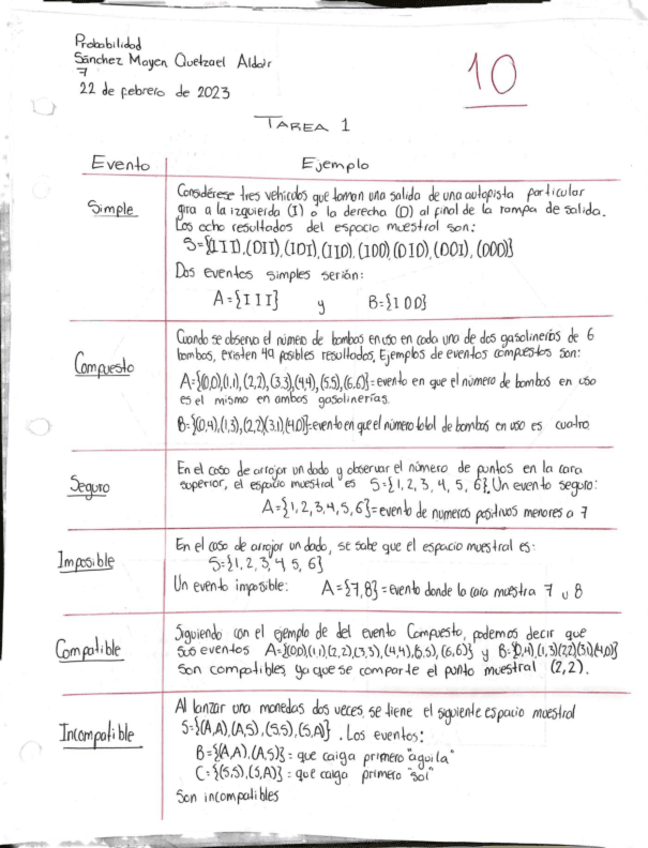 Probabilidad
Sánchez Moyen Quetzael Aldair
7
22 de febrero de 2023
10
TAREA 1
Evento
Ejemplo
Simple
Considérese tres vehículos que toman una salida de una autopista particular
gira a la izquierda (I) o la derecha (D) al final de la rampa de salida.
Los ocho resultados del espacio muestral son:
S={(III),(DII),(IDI),(IID),(IDD),(DID),(DDI),(DDD)}
Dos eventos simples serían:
A={III} y B={IDD}
Compuesto
Cuando se observa el número de bombas en uso en cada una de dos gasolinerías de 6
bombas, existen 49 posibles resultados, Ejemplos de eventos compuestos son:
A={(0,0),(1,1),(2,2),(3,3),(4,4),(5,5),(6,6)}=evento en que el número de bombas en uso
es el mismo en ambas gasolinerías.
B={(0,4),(1,3),(2,2)(3,1)(4,0)}=evento en que el número total de bombas en uso es cuatro
Seguro
En el caso de arrojar un dado y observar el número de puntos en la cara
superior, el espacio muestral es S={1,2,3,4,5,6}. Un evento seguro:
A={1,2,3,4,5,6}=evento de numeros positivos menores a 7
Imposible
En el caso de arrojar un dado, se sabe que el espacio muestral es:
S={1,2,3,4 5,6}
Un evento imposible: A={7,8}=evento donde la cara muestra 7 u 8
Compatible
Siguiendo con el ejemplo de del evento Compuesto, podemos decir que
sus eventos A={(0,0)(1,1)(2,2),(3,3),(4,4),(5,5),(6,6)} y B={(0,4),(1,3)(2,2)(3,1)(4,0)}
son compatibles, ya que se comparte el punto muestral (2,2).
Incompatible
Al lanzar una monedas dos veces, se tiene el siguiente espacio muestral
S={(A,A),(A,S),(S,S),(S,A)}. Los eventos:
B={(A,A),(A,S)}: que caiga primero "aguila"
C={(S,S),(S,A)}: que caiga primero "sol"
Son incompatibles